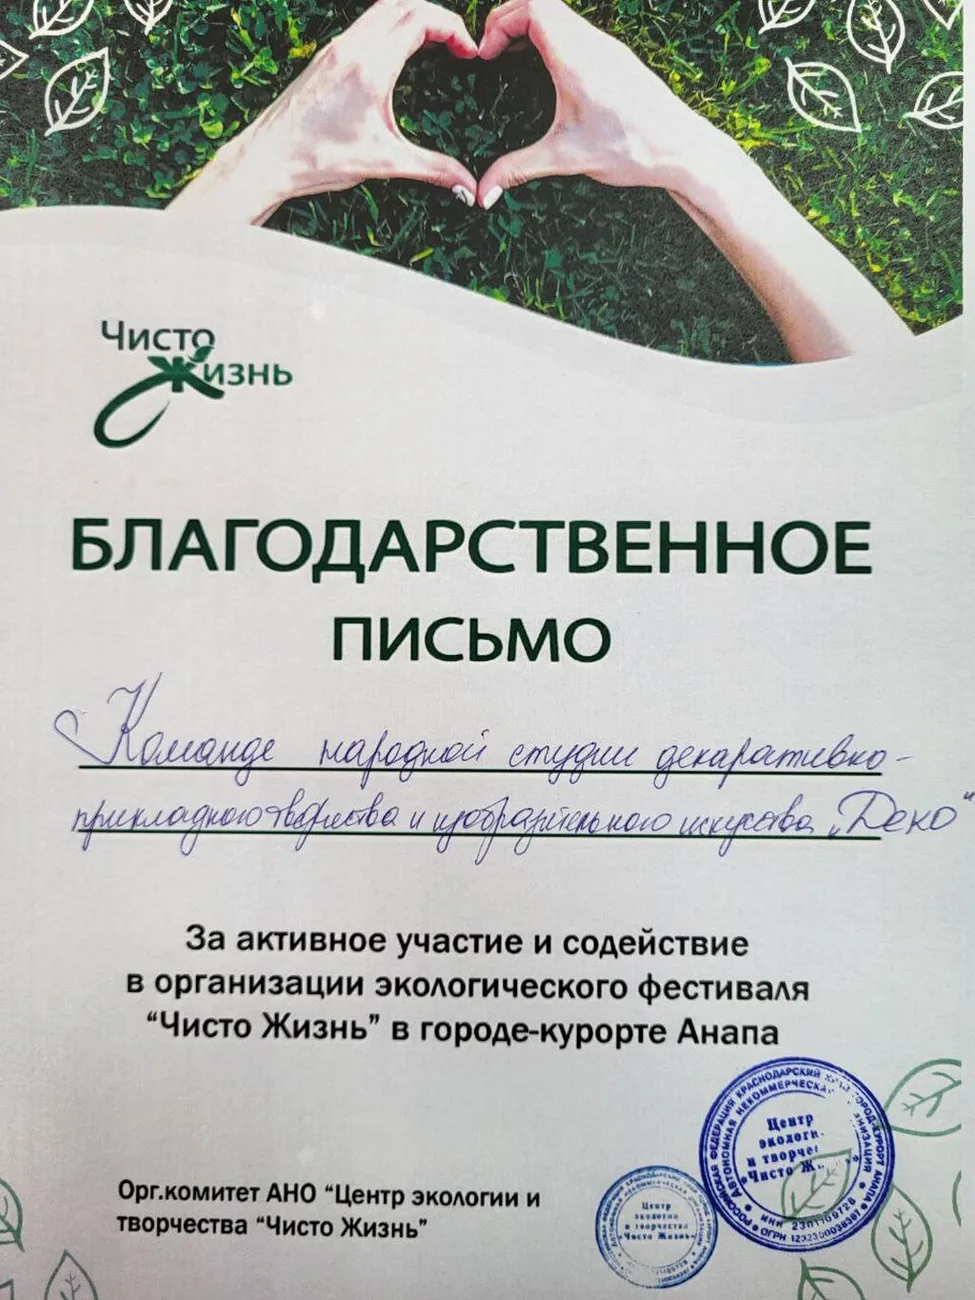 Чисто
Жизнь
БЛАГОДАРСТВЕННОЕ
ПИСЬМО
Команде народной студии декаративно-
прикладного творчества и изобразительного искусства „Деко"
За активное участие и содействие
в организации экологического фестиваля
“Чисто Жизнь” в городе-курорте Анапа
Орг.комитет АНО “Центр экологии и
творчества “Чисто Жизнь”
РОССИЙСКАЯ ФЕДЕРАЦИЯ КРАСНОДАРСКИЙ ГОРОД-КУРОРТ АНАПА
АВТОНОМНАЯ НЕКОММЕРЧЕСКАЯ
Центр
и
«Чисто
ИНН
ОГРН
Центр
экологии
и творчества
«Чисто Жизнь»